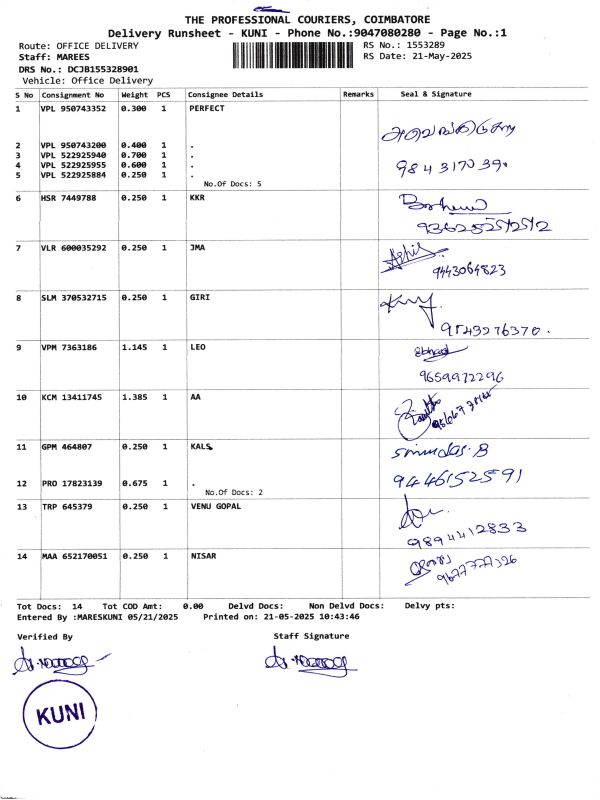 THE PROFESSIONAL COURIERS, COIMBATORE
Delivery Runsheet - KUNI - Phone No.:9047080280 - Page No.:1
Route: OFFICE DELIVERY RS No.: 1553289
Staff: MAREES RS Date: 21-May-2025
DRS No.: DCJB155328901
Vehicle: Office Delivery
S No Consignment No Weight PCS Consignee Details Remarks Seal & Signature
1 VPL 950743352 0.300 1 PERFECT
2 VPL 950743200 0.400 1 .
3 VPL 522925940 0.700 1 .
4 VPL 522925955 0.600 1 . 9843170390
5 VPL 522925884 0.250 1 .
No.Of Docs: 5
6 HSR 7449788 0.250 1 KKR
7 VLR 600035292 0.250 1 JMA
9443064823
8 SLM 370532715 0.250 1 GIRI
9543276370.
9 VPM 7363186 1.145 1 LEO
9659972296
10 KCM 13411745 1.385 1 AA
11 GPM 464807 0.250 1 KALS
12 PRO 17823139 0.675 1 . 9446152591
No.Of Docs: 2
13 TRP 645379 0.250 1 VENU GOPAL
9894412833
14 MAA 652170051 0.250 1 NISAR
9677777326
Tot Docs: 14 Tot COD Amt: 0.00 Delvd Docs: Non Delvd Docs: Delvy pts:
Entered By :MARESKUNI 05/21/2025 Printed on: 21-05-2025 10:43:46
Verified By Staff Signature
KUNI